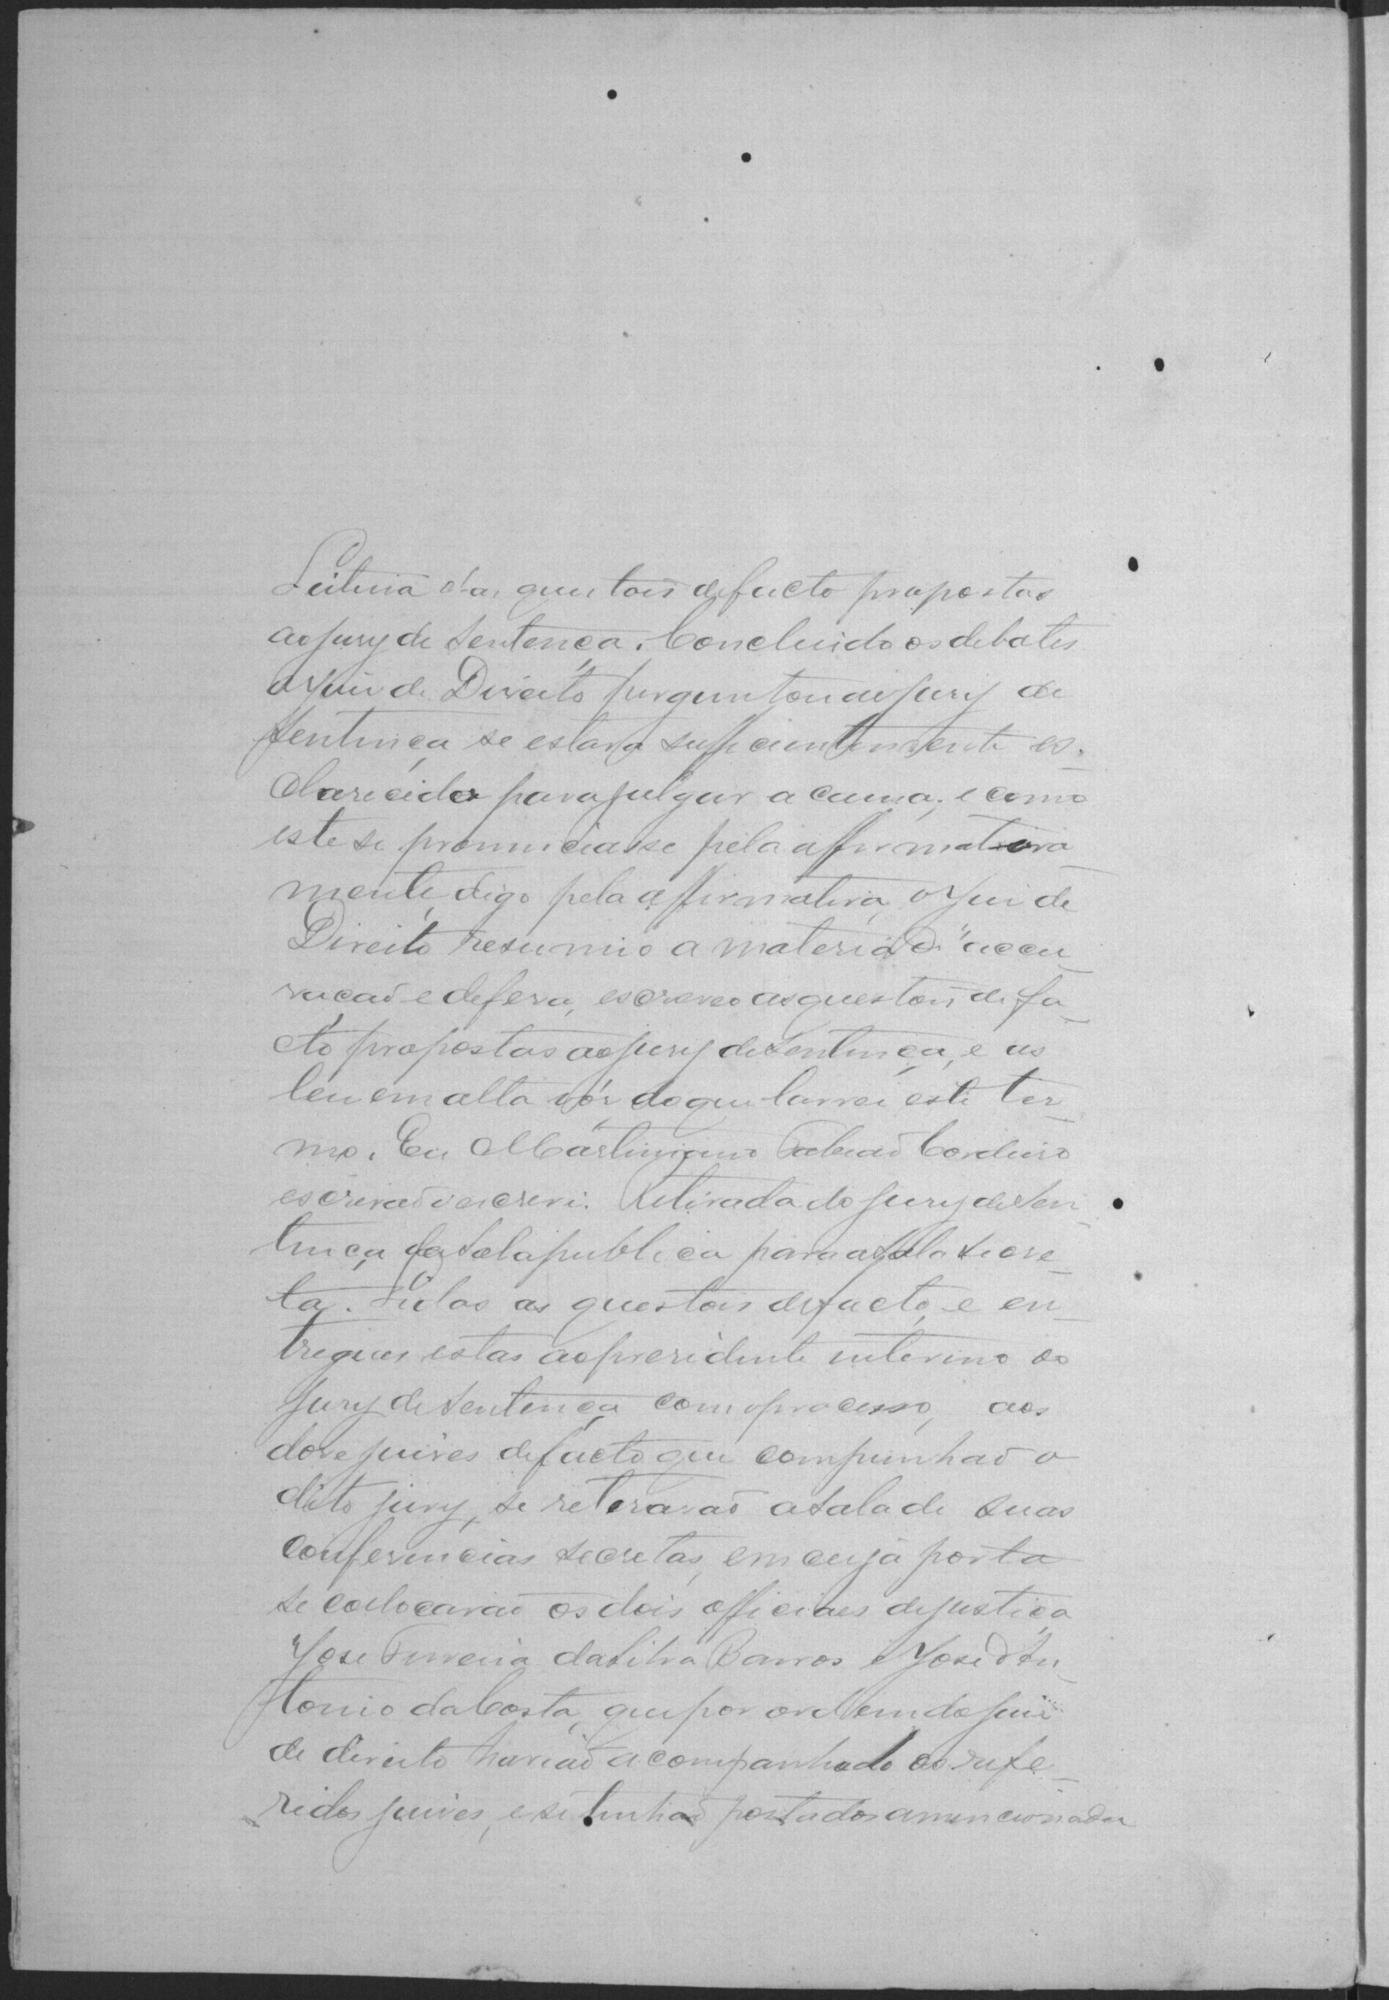 Leitura das questoes de facto propostas
ao jury de sentença. Concluido os debates
o Juiz de Direito perguntou ao jury de
sentença se estava sufficientemente es-
clarecido para julgar a causa; e como
este se pronunciasse pela affirmativa-
mente, digo pela affirmativa, o Juiz de
Direito resumio a materia da accu-
zacaõ e defeza, escreveo as questoẽs de fa-
cto propostas ao jury de sentença, e as
leu em alta vóz do que lavrei este ter-
mo. Eu Martiniano Cordeiro
escrivaõ o escrevi. Retirada do jury de sen-
tença da sala publica para a sala secre-
ta. Lidas as questoẽs de facto, e en-
tregues estas ao prezidente interino do
jury de sentença com o processo, aos
doze juizes de facto que compunhaõ o
dito jury, se retiraraõ a sala de suas
conferencias secretas, em cuja porta
se collocaraõ os dois officiaes de justiça
José Ferreira da Silva Barros e José An-
tonio da Costa, que por ordem do juiz
de direito haviaõ acompanhado os refe-
ridos juizes, e se tinhaõ postados a mencionada